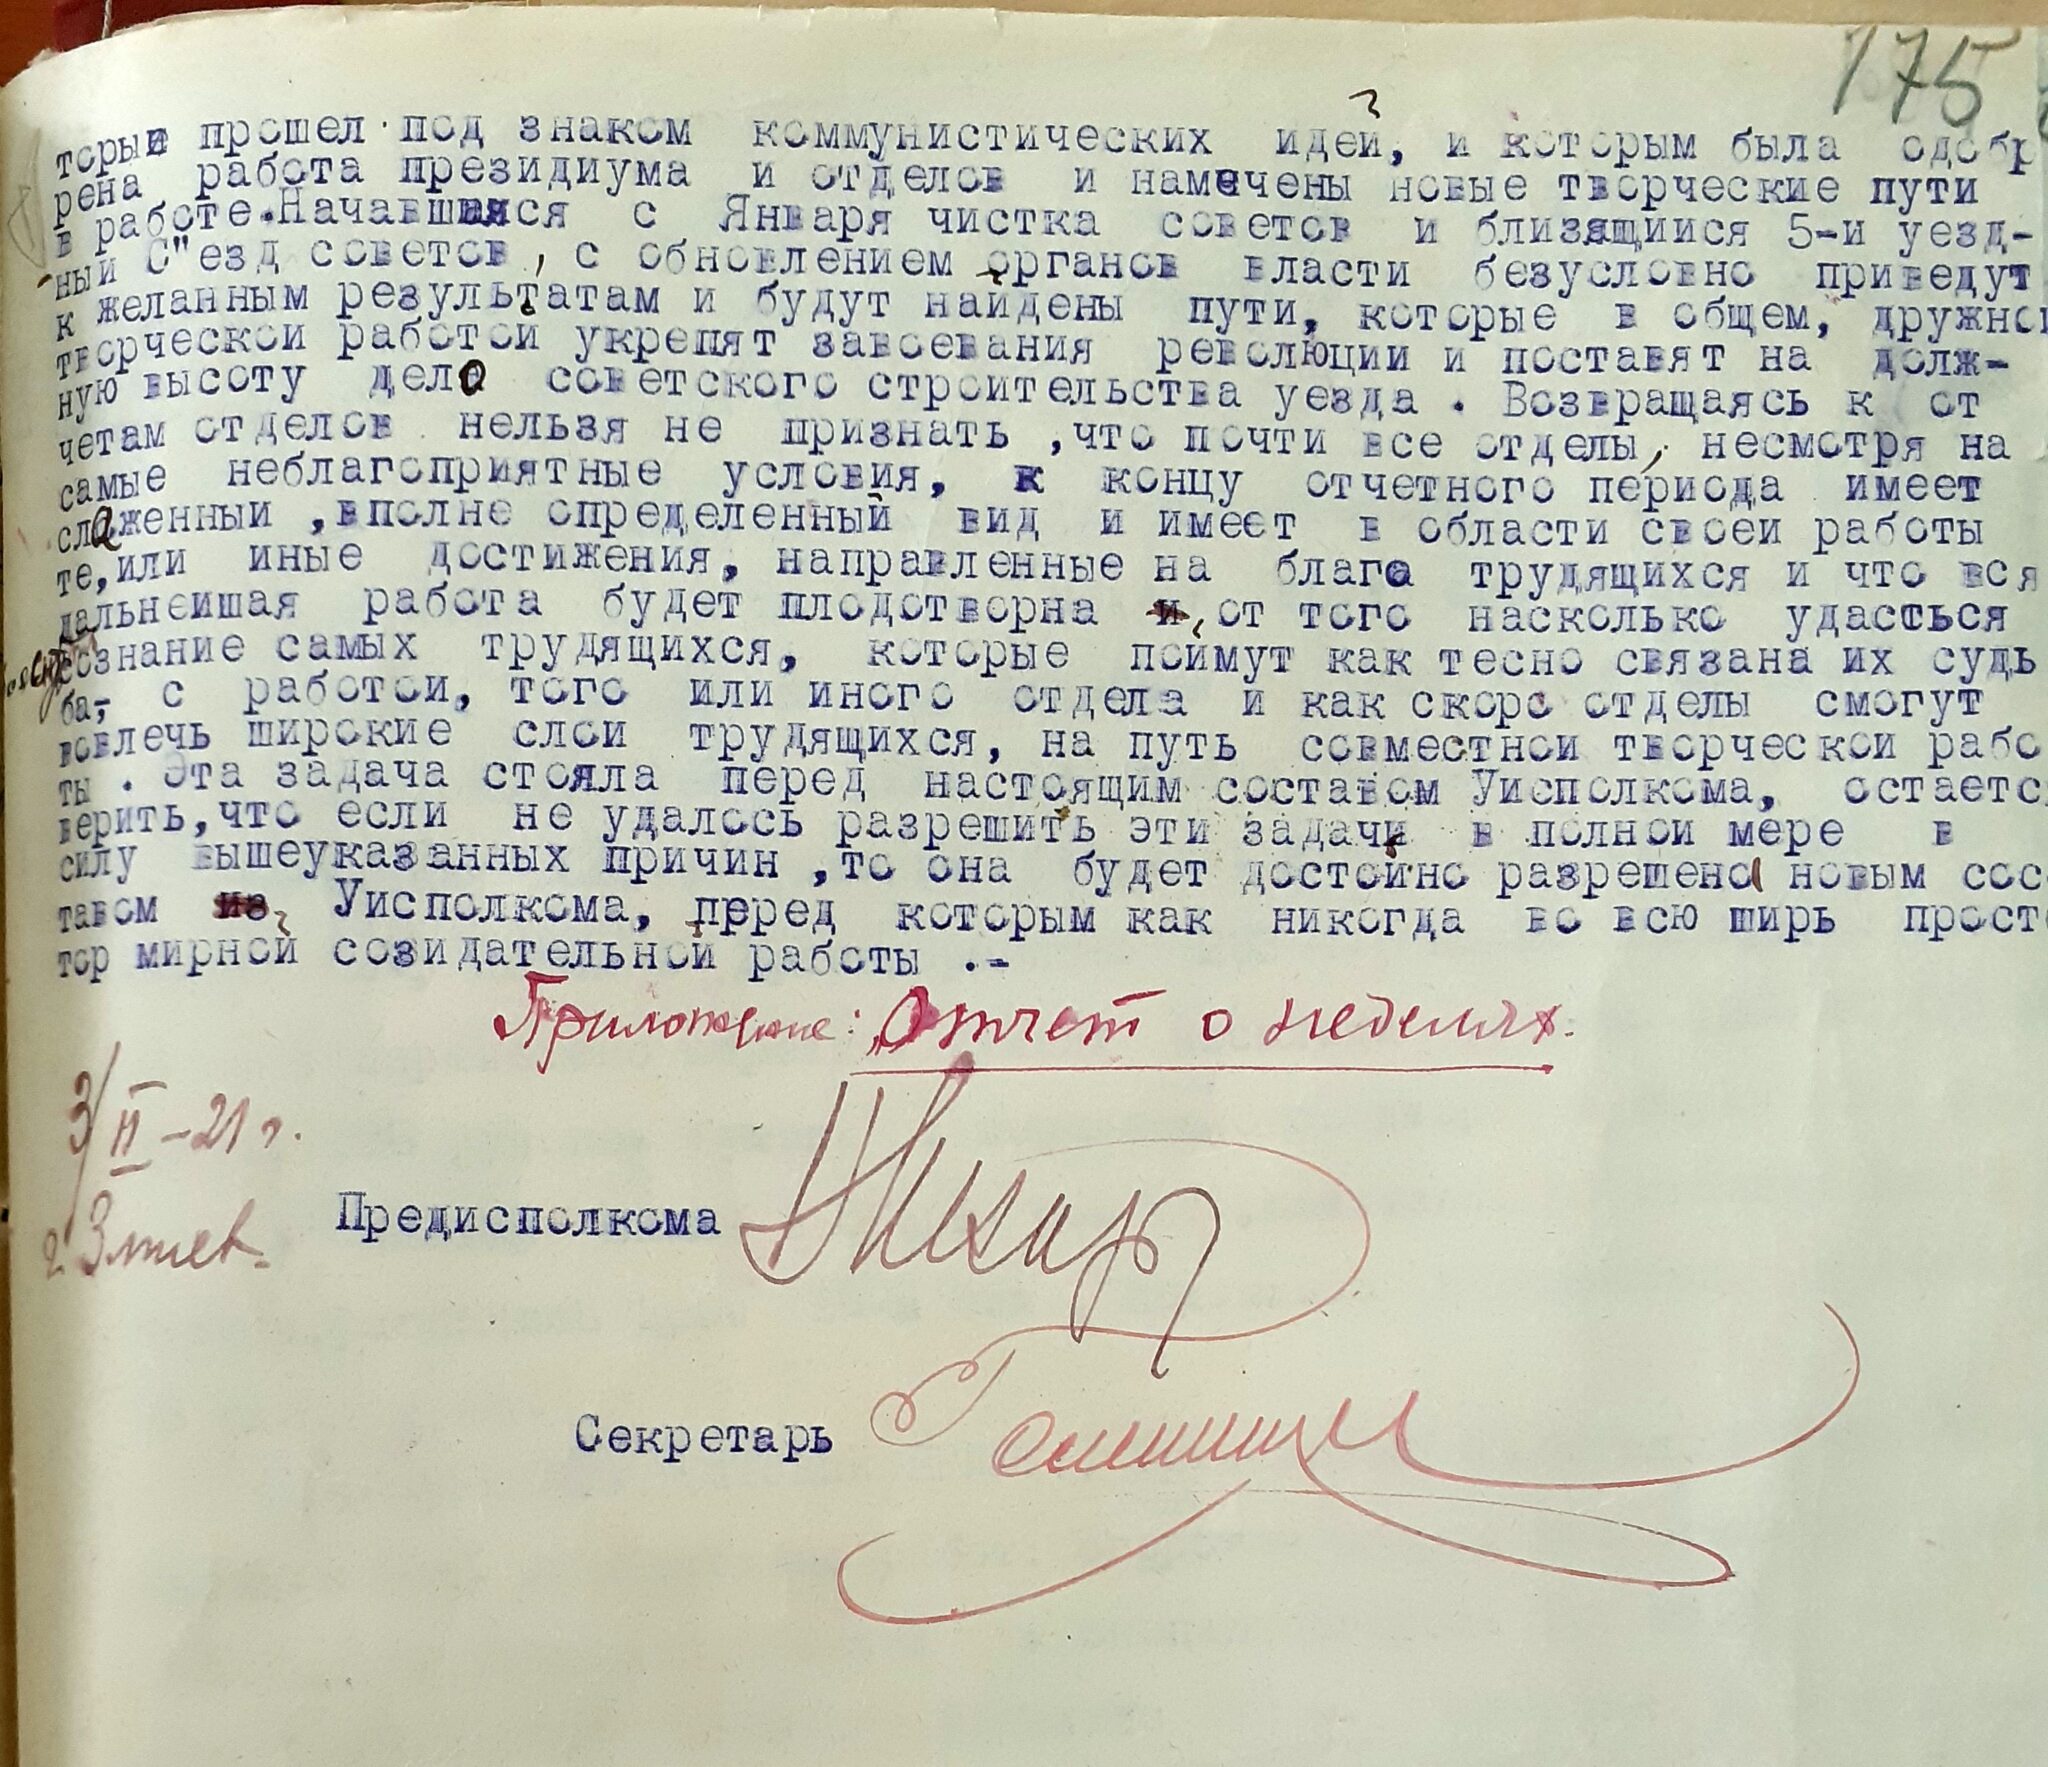 175
торый прошел под знаком коммунистических идей, и которым была одобр
рена работа президиума и отделов и намечены новые творческие пути
в работе.Начавшаяся с Января чистка советов и близящииися 5-и уезд-
ный С"езд советов, с обновлением органов власти безусловно приведут
к желанным результатам и будут найдены пути, которые в общем, дружной
творческой работой укрепят завоевания революции и поставят на долж-
ную высоту дело советского строительства уезда . Возвращаясь к от
четам отделов нельзя не признать ,что почти все отделы, несмотря на
самые неблагоприятные условия, к концу отчетного периода имеет
слаженный ,вполне определенный вид и имеет в области своеи работы
те,или иные достижения, направленные на благо трудящихся и что вся
дальнеишая работа будет плодотворна и, от того насколько удасться
сознание самых трудящихся, которые поимут как тесно связана их судь
ба, с работои, того или иного отдела и как скоро отделы смогут
вовлечь широкие слои трудящихся, на путь совместнои творческои рабо
ты . Эта задача стояла перед настоящим составом Уисполкома, остается
верить,что если не удалось разрешить эти задачи в полнои мере в
силу вышеуказанных причин ,то она будет достойно разрешена новым сос
тавом из Уисполкома, перед которым как никогда во всю ширь просто
тор мирной созидательной работы .-
Приложение: Отчет о неделях.
3/II-21 г.
г. Змиев.
Предисполкома
Секретарь